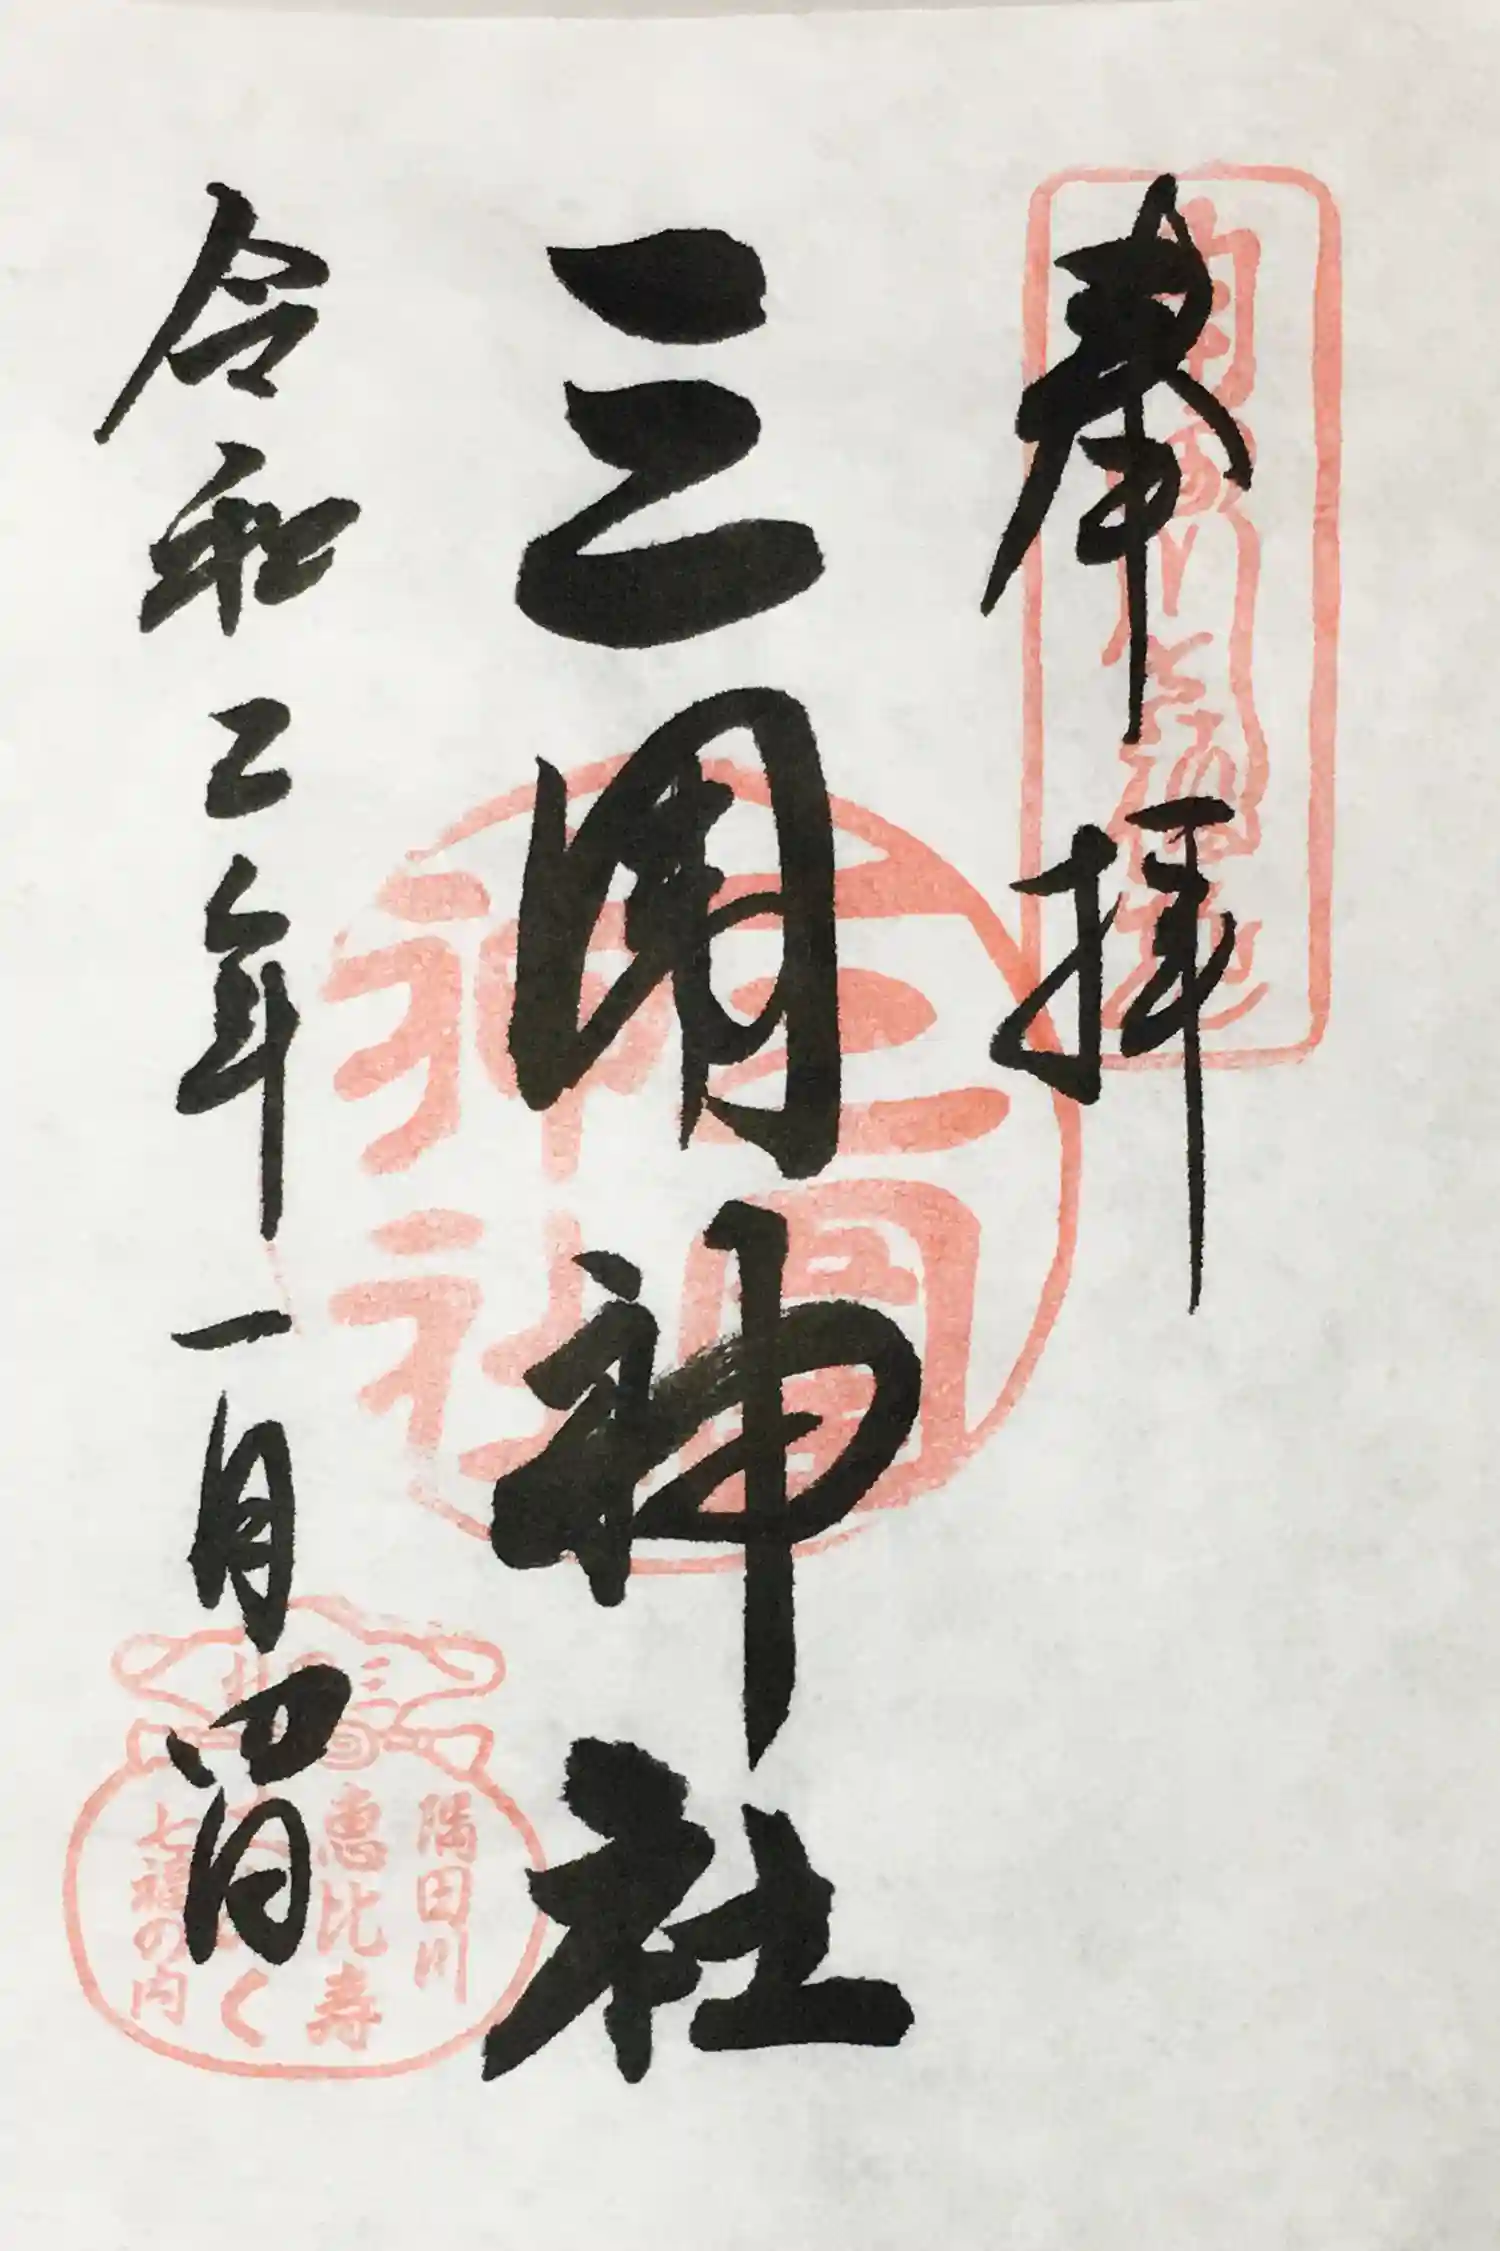 奉拝
三囲神社
令和二年一月四日
三囲神社
隅田川
恵比寿
七福の内